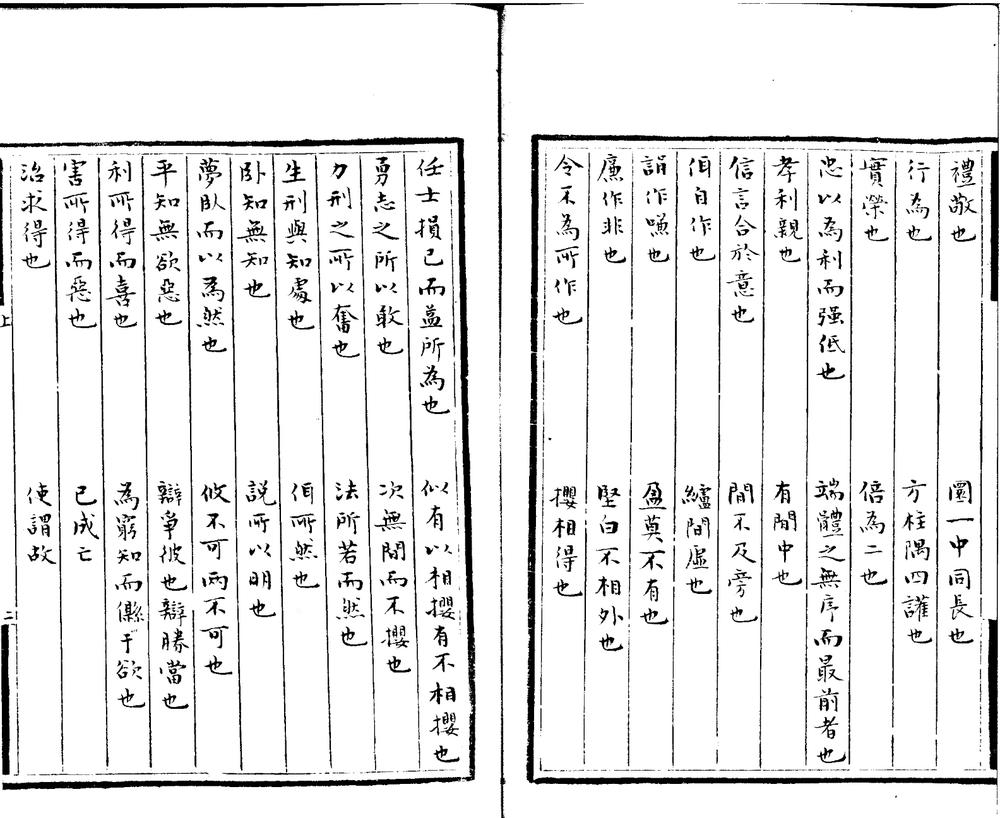 禮敬也　圜一中同長也
行為也　方柱隅四讙也
實榮也　倍為二也
忠以為利而强低也　端體之無序而最前者也
孝利親也　有間中也
信言合於意也　間不及旁也
佴自作也　纑間虛也
䛼作嗛也　盈莫不有也
廉作非也　堅白不相外也
令不為所作也　攖相得也
任士損己而益所為也　似有以相攖有不相攖也
勇志之所以敢也　次無間而不攖也
力刑之所以奮也　法所若而然也
生刑與知處也　佴所然也
臥知無知也　說所以明也
夢臥而以為然也　攸不可兩不可也
平知無欲惡也　辯爭彼也辯勝當也
利所得而喜也　為窮知而于欲也
害所得而惡也　已成亡
治求得也　使謂故
上　二